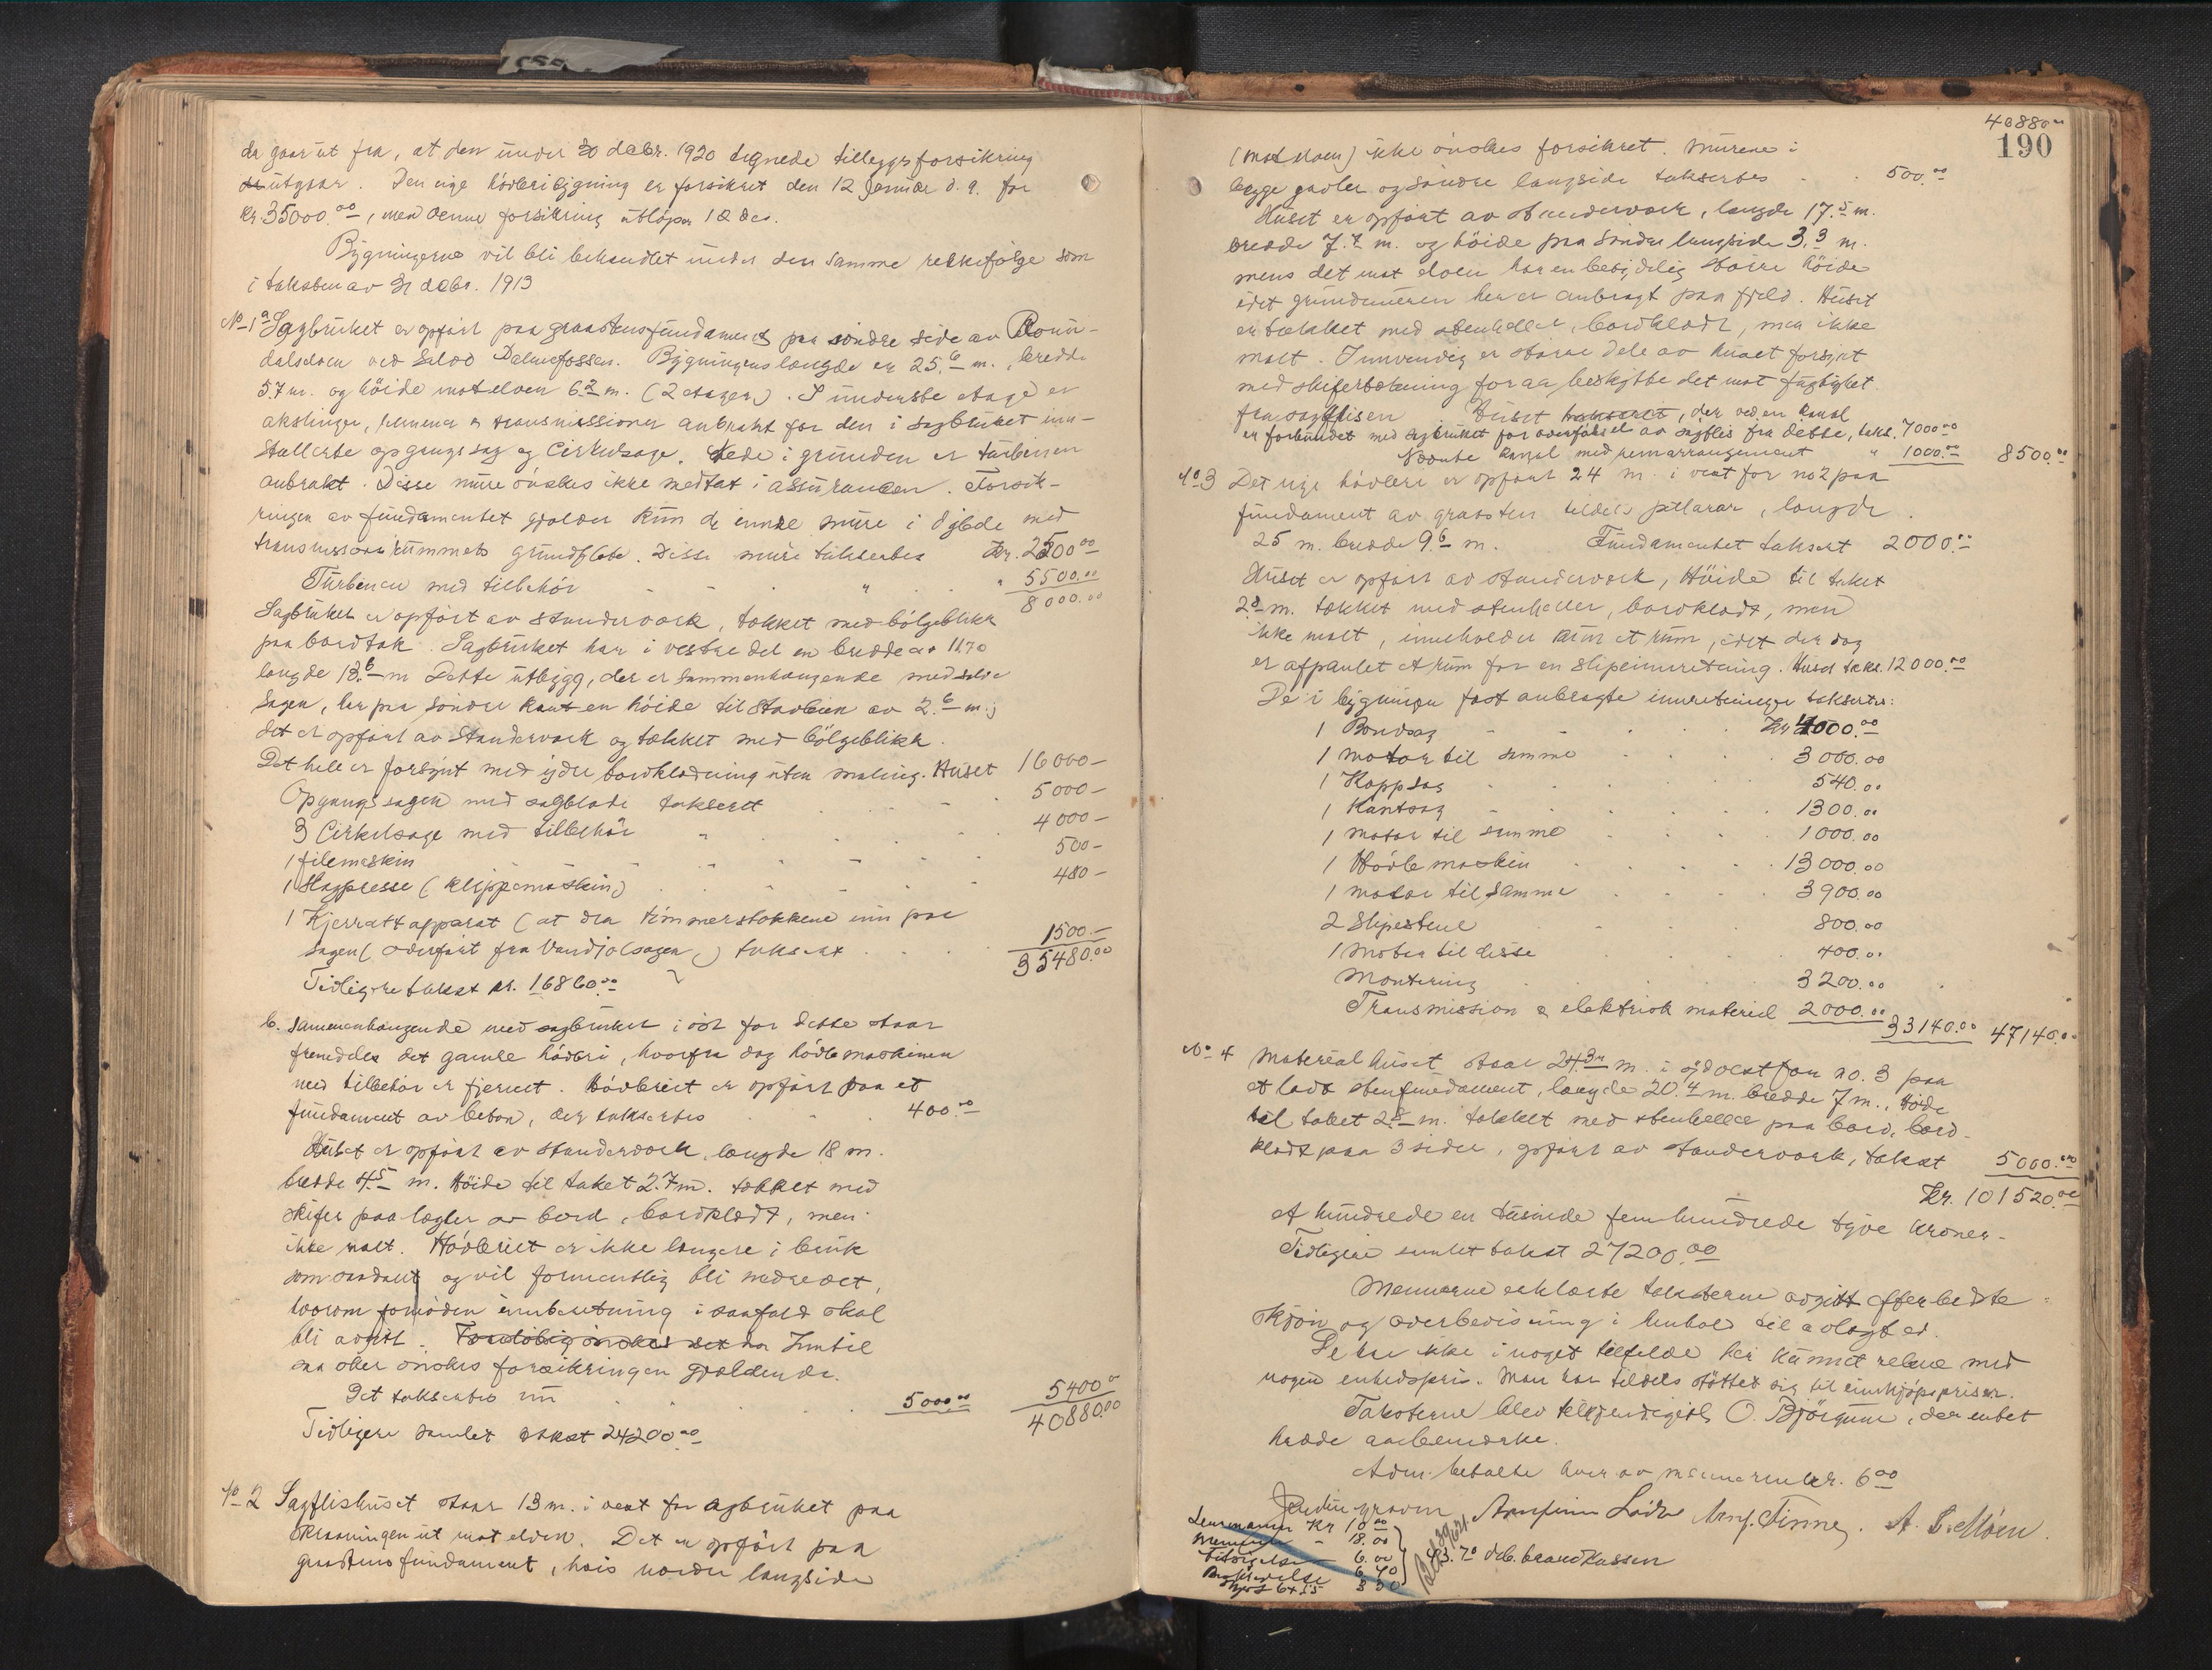 da gaar ut fra, at den under 30 decbr. 1920 tegnede tillegsforsikring
utgaar. Den nye høvleribygning er forsikret den 12 Januar d. a. for
Kr. 35000.00, men denne forsikring utløper 12 des.
Bygningerne vil bli behandlet under den samme rekkefølge som
i taksten av 31 decbr. 1913
No 1 a Sagbruket er opført paa graastensfundament paa søndre side av Raun-
dalselven ved Palmefossen. Bygningens længde er 25.6 m., bredde
5.7 m. og höide mot elven 6.2 m. (2 etager). I underste etage er
akslinger, remmer & transmissioner anbrakt for den i sagbruket inn-
stallerte opgangssag og Cirkelsage. Nede i grunden er turbinen
anbrakt. Disse mure ønskes ikke medtat i assurancen. Forsik-
ringen av fundamentet gjælder kun de indre mure i dybde med
transmissionsrummets grundflate. Disse mure taksertes Kr. 2500.00
Turbinen med tilbehør " " 5500.00
8000.00
Sagbruket er opført av standerværk, tækket med bølgeblikk
paa bordtak. Sagbruket har i vestre del en bredde av 11.70
længde 13.6 m Dette utbygg, der er sammenhængende med selve
sagen, har paa søndre kant en höide til stavleien av 2.6 m.;
det er opført av standerværk og tækket med bölgeblikk.
Det hele er forsynt med ydre bordklædning uten maling. Huset 16000 –
Opgangssagen med sagblade taksert 5000 –
3 Cirkelsage med tilbehör " 4000 –
1 filemaskin 500 –
1 Stagpresse (klippemaskin) 480 –
1 Kjerrattapparat (at dra tømmerstokkene inn paa
sagen (overført fra Vandjolsagen) taksert 1500.–
35480.00
Tidligere takst kr. 16860.00
b. Sammenhængende med sagbruket i öst for dette staar
fremdeles det gamle høvleri, hvorfra dog hövlemaskinen
med tilbehør er fjernet. Hövleriet er opført paa et
fundament av beton, der taksertes 400.00
Huset er opført av standerværk, længde 18 m.
bredde 4.5 m. Höide til taket 2.7 m. tækket med
skifer paa lægter av bord, bordklædt, men
ikke malt. Hövleriet er ikke længere i bruk
som saadant og vil formentlig bli nedrevet,
hvorom fornöden innberetning i saafald skal
bli avgit. Foreløbig ønskes det nu Inntil
saa sker önskes forsikringen gjældende.
Det taksertes nu 5000.00 5400.00
40880.00
Tidligere samlet takst 24200.00
No 2 Sagflishuset staar 13 m. i vest for sagbruket paa
skraaningen ut mot elven. Det er opført paa
graastensfundament, hvis nordre langside
40880.00
190
(mot elven) ikke önskes forsikret. Murene i
begge gavler og søndre langside taksertes 500.00
Huset er opført av standerværk, længde 17.5 m.
bredde 7.2 m. og höide paa søndre langside 3.3 m.
mens det mot elven har en betydelig større höide
idet grundmuren her er anbragt paa fjeld. Huset
er tækket med stenheller, bordklædt, men ikke
malt. Innvendig er større dele av huset forsynt
med skifertækning for aa beskytte det mot fugtighet
fra sagflisen Huset taksert, der ved en kanal
er forbundet med sagbruket for overførsel av sagflis fra dette, taks. 7000.00
Nævnte kanal med remarrangement " 1000.00 8500.00
No 3 Det nye høvleri er opført 24 m. i vest for no 2 paa
fundament av graasten tildels pillarer, længde
25 m. bredde 9.6 m. Fundamentet taksert 2000.00
Huset er opført av standerværk, Höide til taket
2.8 m. tækket med stenheller, bordklædt, men
ikke malt, inneholder kun et rum, idet der dog
er afpanlet et rum for en slipeinnretning. Huset taks. 12000.00
De i bygningen fast anbragte innretninger takseres:
1 Bandsag Kr 4000.00
1 motor til samme 3000.00
1 Kappsag 540.00
1 Kantsag 1300.00
1 motor til samme 1000.00
1 Hövlemaskin 13000.00
1 motor til samme 3900.00
2 Slipestene 800.00
1 Motor til disse 400.00
Montering 3200.00
Transmission & elektrisk materiel 2000.00 33140.00 47140.00
No 4 Materialhuset staar 24.3 m. i sydvest for no. 3 paa
et lavt stenfundament, længde 20.4 m. bredde 7 m., höide
til taket 2.8 m. tækket med stenheller paa bord, bord-
klædt paa 3 sider, opført av standerværk, takst 5000.00
Kr. 101520.00
Et hundrede en tusinde femhundrede tyve kroner.
Tidligere samlet takst 27200.00
Mennerne erklærte taksterne avgitt efter bedste
skjøn og overbevisning i henhold til avlagt ed.
De har ikke i noget tilfælde her kunnet relne med
nogen enhedspris. Man har tildels støttet sig til innkjøpspriser.
Taksterne blev tilkjendegitt O. Bjørgum, der intet
hadde aa bemerke.
Adm. betalte hver av mennerne kr. 6.00
Arnfinn Lödve Arng. Finne. A. L. Möen.
Lensmannen Kr 10.00
Mennene " 18.00
6.00 43.70 deb. brandkassen
6.40
Skyds 6 x 55 3 30